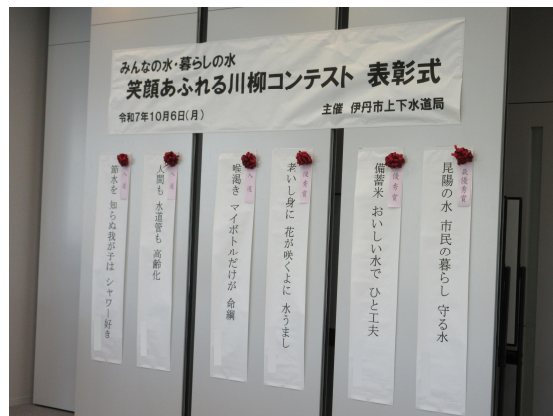 みんなの水・暮らしの水
笑顔あふれる川柳コンテスト 表彰式
令和7年10月6日(月)
主催 伊丹市上下水道局
最優秀賞
昆陽の水 市民の暮らし 守る水
優秀賞
備蓄米 おいしい水で ひと工夫
優秀賞
老いし身に 花が咲くよに 水うまし
入選
喉渇き マイボトルだけが 命綱
入選
人間も 水道管も 高齢化
入選
節水を 知らぬ我が子は シャワー好き